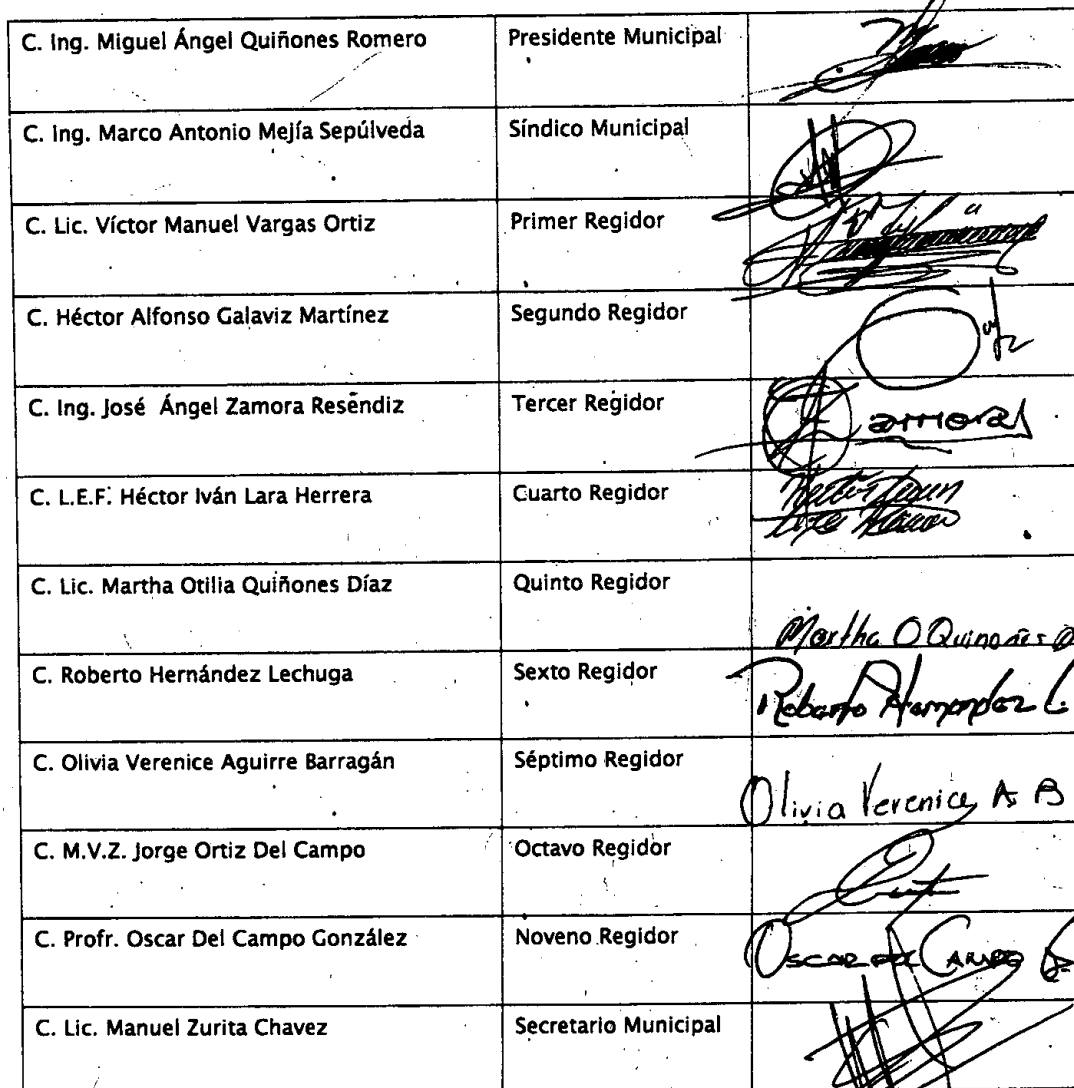 C. Ing. Miguel Ángel Quiñones Romero Presidente Municipal
C. Ing. Marco Antonio Mejía Sepúlveda Síndico Municipal
C. Lic. Víctor Manuel Vargas Ortiz Primer Regidor
C. Héctor Alfonso Galaviz Martínez Segundo Regidor
C. Ing. José Ángel Zamora Reséndiz Tercer Regidor
C. L.E.F. Héctor Iván Lara Herrera Cuarto Regidor
C. Lic. Martha Otilia Quiñones Díaz Quinto Regidor
Martha O Quiñones D
C. Roberto Hernández Lechuga Sexto Regidor
Roberto Hernández L.
C. Olivia Verenice Aguirre Barragán Séptimo Regidor
Olivia Verenice A B
C. M.V.Z. Jorge Ortiz Del Campo Octavo Regidor
C. Profr. Oscar Del Campo González Noveno Regidor
OSCAR DEL CAMPO G.
C. Lic. Manuel Zurita Chavez Secretario Municipal